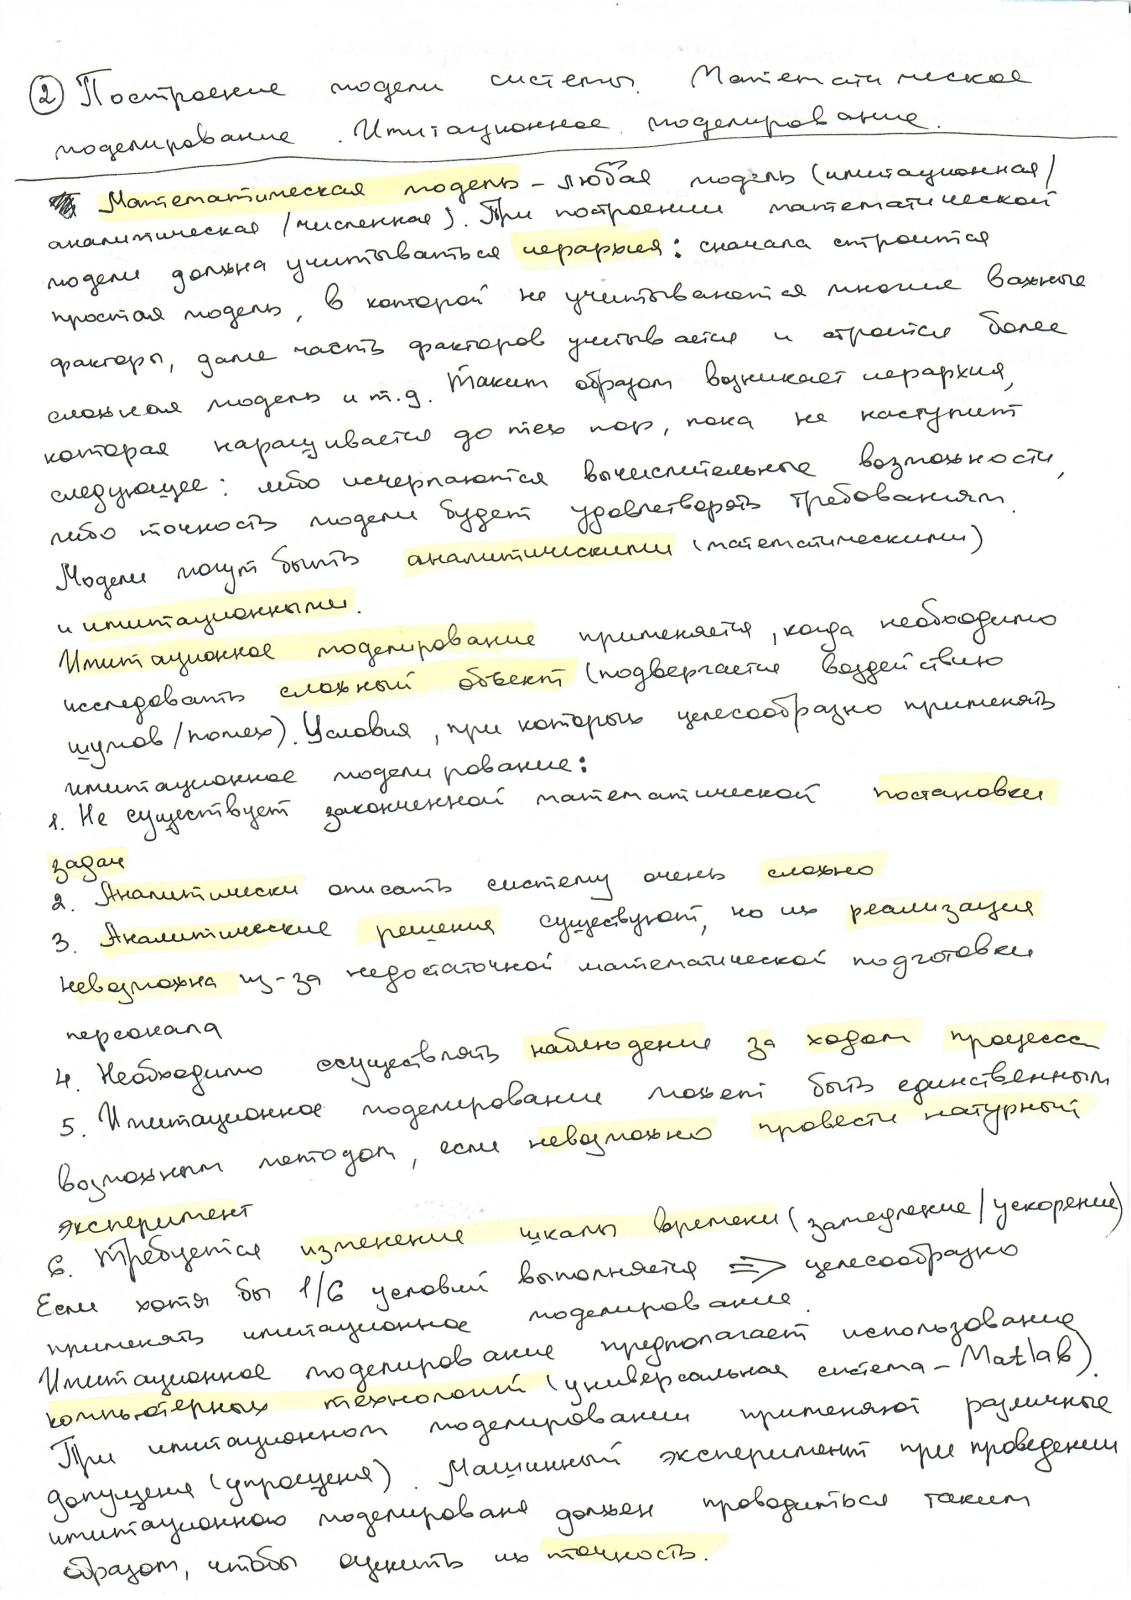 ② Построение модели системы. Математическое
моделирование. Имитационное моделирование.
Математическая модель – любая модель (имитационная/
аналитическая/численная). При построении математической
модели должна учитываться иерархия: сначала строится
простая модель, в которой не учитываются многие важные
факторы, далее часть факторов учитывается и строится более
сложная модель и т.д. Таким образом возникает иерархия,
которая наращивается до тех пор, пока не наступит
следующее: либо исчерпаются вычислительные возможности,
либо точность модели будет удовлетворять требованиям.
Модели могут быть аналитическими (математическими)
и имитационными.
Имитационное моделирование применяется, когда необходимо
исследовать сложный объект (подвергается воздействию
шумов/помех). Условия, при которых целесообразно применять
имитационное моделирование:
1. Не существует законченной математической постановки
задач
2. Аналитически описать систему очень сложно
3. Аналитические решения существуют, но их реализация
невозможна из-за недостаточной математической подготовки
персонала
4. Необходимо осуществлять наблюдение за ходом процесса
5. Имитационное моделирование может быть единственным
возможным методом, если невозможно провести натурный
эксперимент
6. Требуется изменение шкалы времени (замедление/ускорение)
Если хотя бы 1/6 условий выполняется ⇒ целесообразно
применять имитационное моделирование.
Имитационное моделирование предполагает использование
компьютерных технологий (универсальная система – Matlab).
При имитационном моделировании применяют различные
допущения (упрощения). Машинный эксперимент при проведении
имитационного моделирования должен проводиться таким
образом, чтобы оценить их точность.